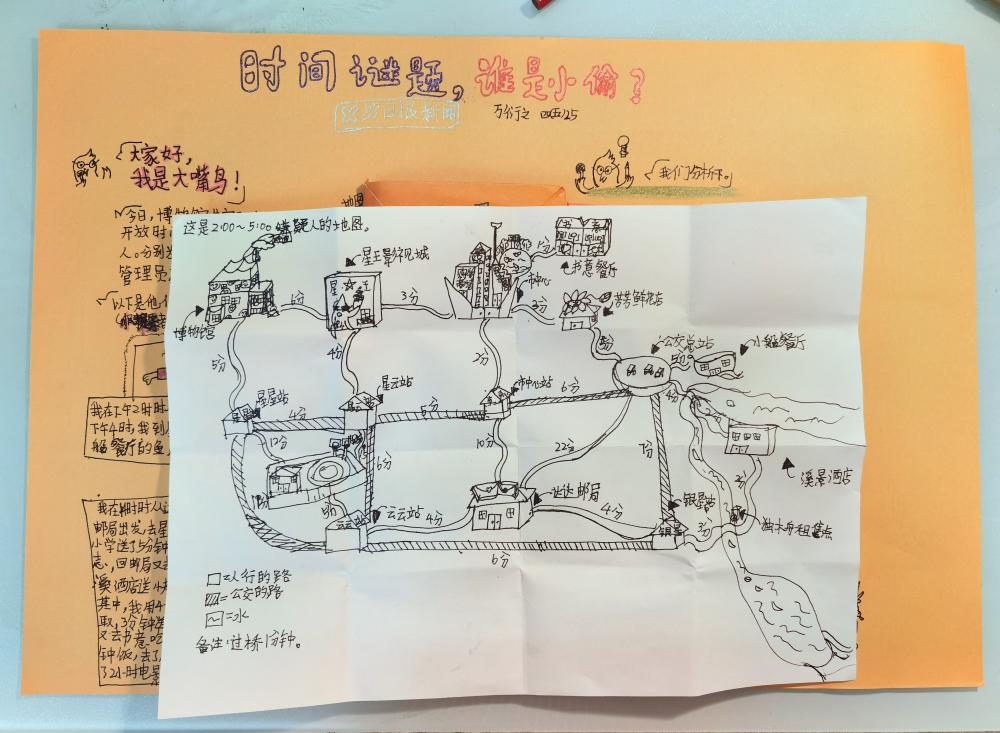 时间谜题,谁是小偷?
万行之 四(五)25
大家好,
我是大嘴鸟!
我们分析下。
今日,博物馆
开放时
人。分别
管理员
以下是他
我在下午2时
下午4时,我到
船餐厅的鱼
邮局出发,去星
小学送了5分钟
志,回邮局又
溪酒店送小
其中,我用4
取,3分钟
又去书意吃
钟饭,去了
了2小时电影
地图
这是2:00~5:00嫌疑人的地图。
博物馆
5分
星王影视城
星王
3分
市中心
1分
书意餐厅
2分
苦苦鲜花店
5分
公交总站
5分
小船餐厅
5分
4分
2分
星星站
4分
星云站
5分
市中心站
6分
4分
溪景酒店
12分
6分
10分
22分
7分
2分
5分
云云站
4分
达达邮局
4分
银星站
3分
独木舟租售点
6分
□=人行的路
=公交的路
=水
备注:过桥1分钟。